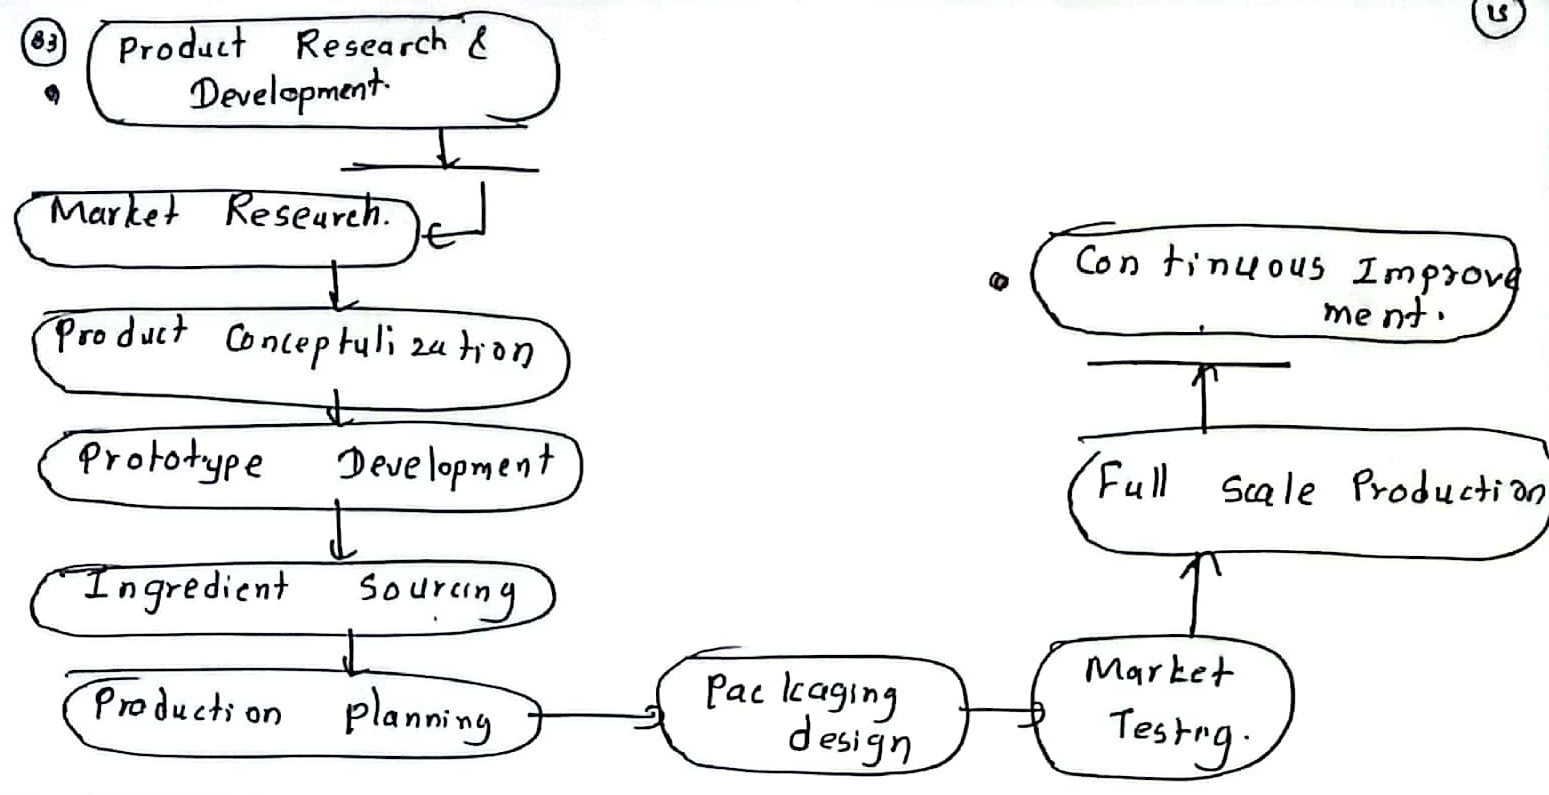 83
15
Product Research &
Development.
Market Reseurch.
Product Conceptulization
Prototype Development
Ingredient Sourcing
Production planning
Packaging
design
Market
Testing.
Full Scale Production
Continuous Improve
ment.